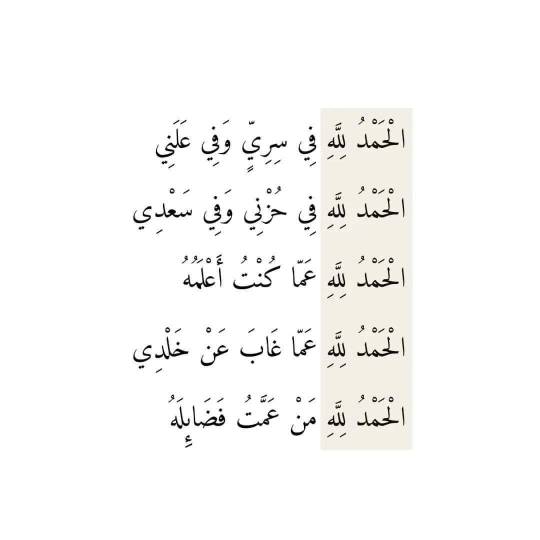 الْحَمْدُ لِلَّهِ فِي سِرِيٍّ وَفِي عَلَنِي
الْحَمْدُ لِلَّهِ فِي حُزْنِي وَفِي سَعْدِي
الْحَمْدُ لِلَّهِ عَمّا كُنْتُ أَعْلَمُهُ
الْحَمْدُ لِلَّهِ عَمّا غَابَ عَنْ خَلْدِي
الْحَمْدُ لِلَّهِ مَنْ عَمَّتُ فَضَائِلَهُ